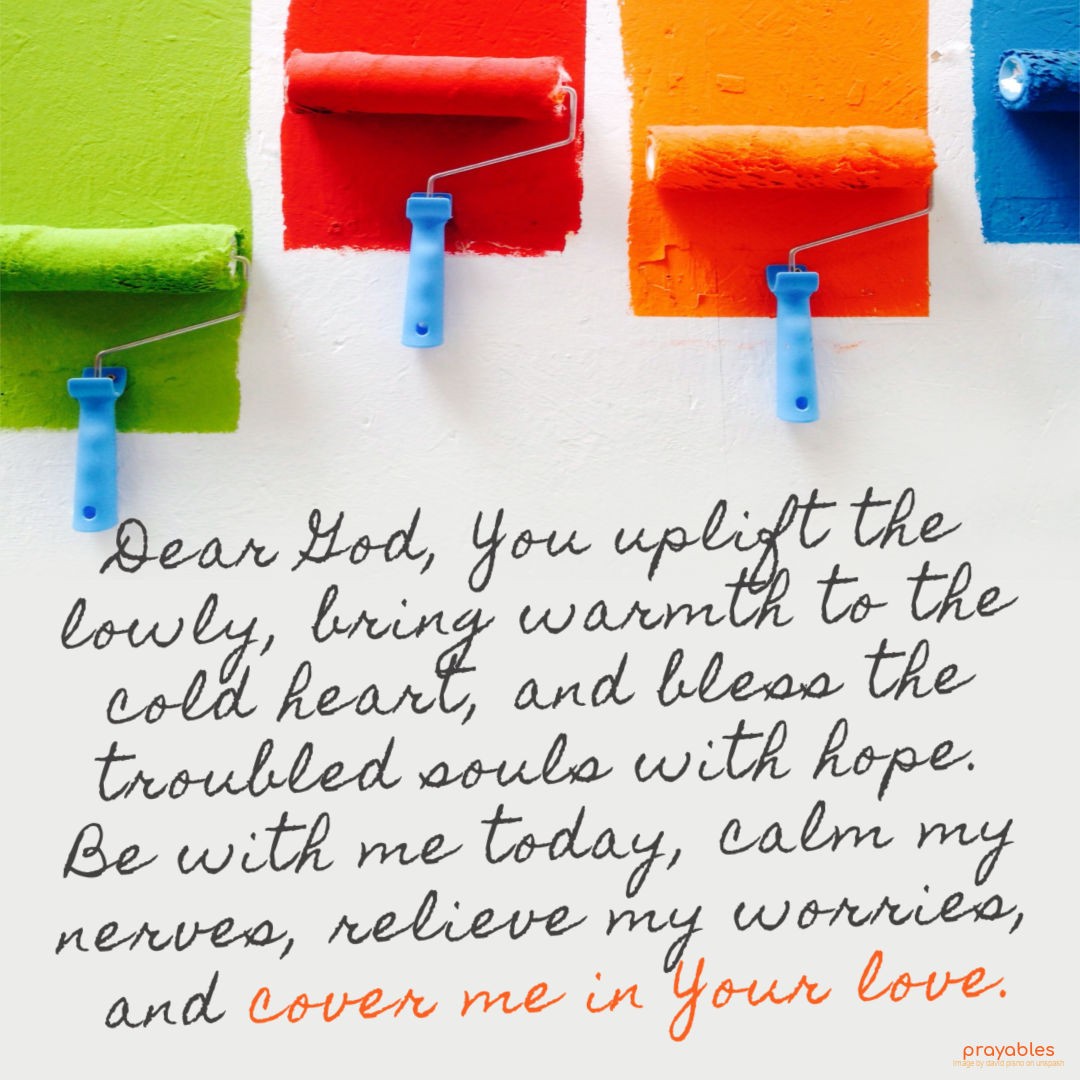 Dear God, You uplift the
lowly, bring warmth to the
cold heart, and bless the
troubled souls with hope.
Be with me today, calm my
nerves, relieve my worries,
and cover me in Your love.
prayables
image by david pisno on unspash